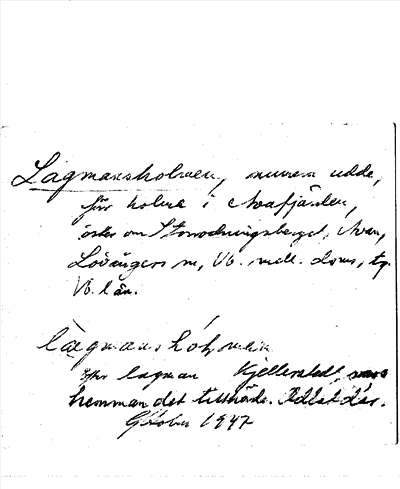 Lagmansholmen, numera udde,
förr holme i Avafjärden,
öster om Storrödningsberget, Avan,
Lövångers sn, Vb. mell. doms, tg.
Vb. län.
lägmanshólmen
efter lagman Kjellerstedt, vars
hemman det tillhörde. Edlat där.
Oktober 1947